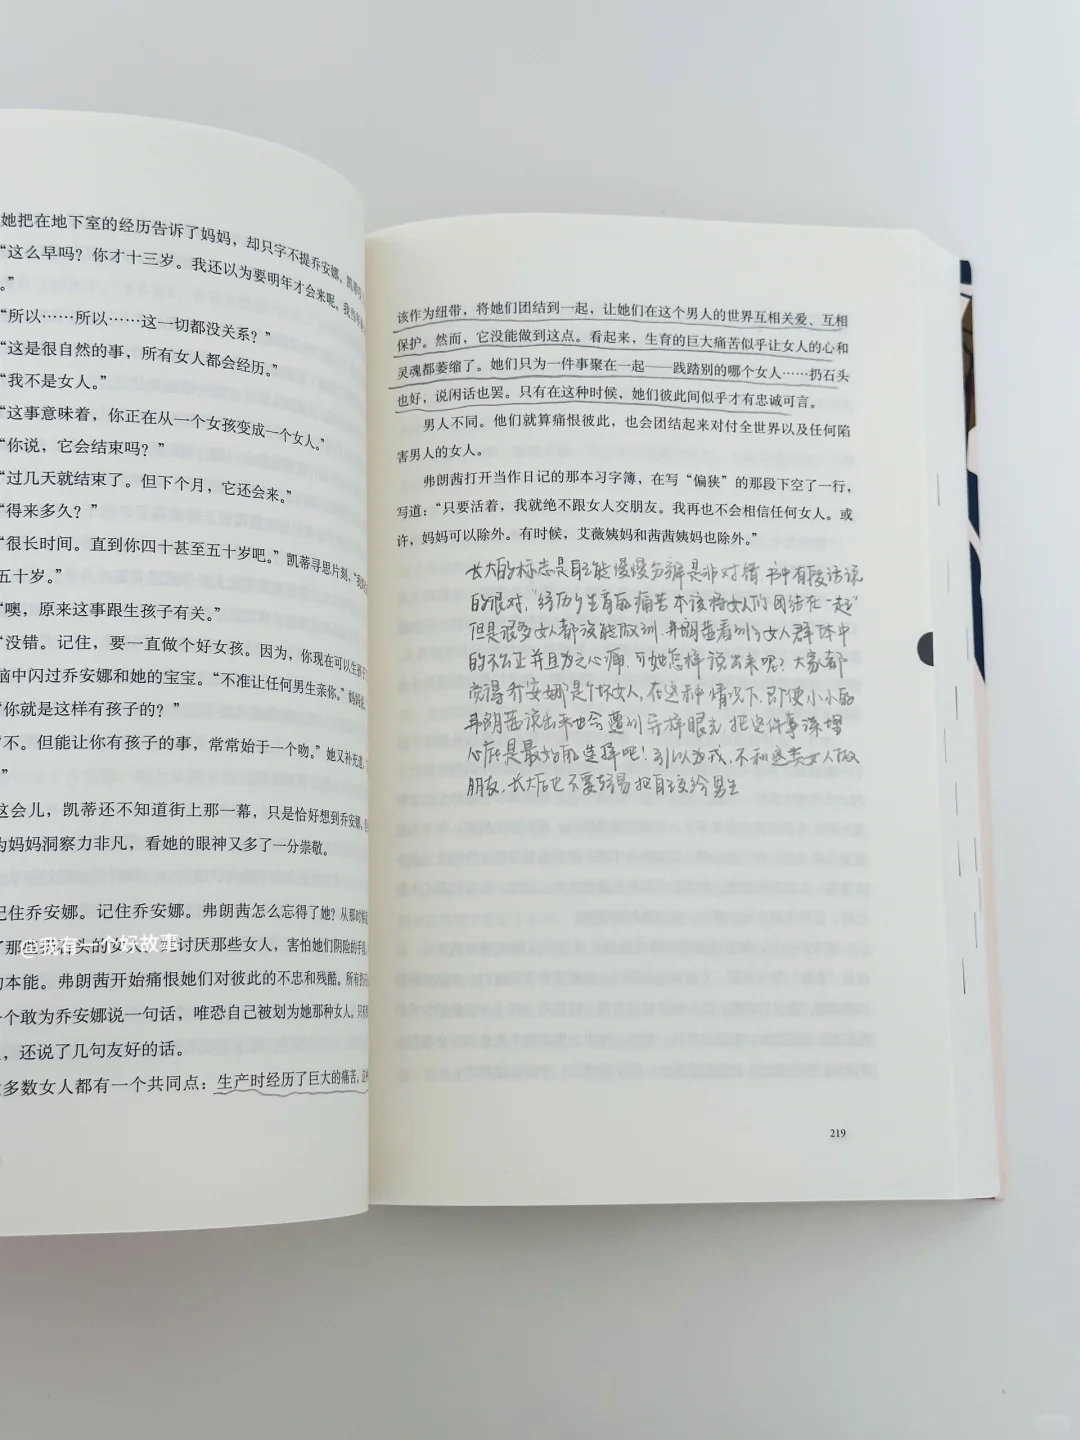 她把在地下室的经历告诉了妈妈，却只字不提乔安娜。凯蒂
“这么早吗？你才十三岁。我还以为要明年才会来呢。我
。”
“所以……所以……这一切都没关系？”
“这是很自然的事，所有女人都会经历。”
“我不是女人。”
“这事意味着，你正在从一个女孩变成一个女人。”
“你说，它会结束吗？”
“过几天就结束了。但下个月，它还会来。”
“得来多久？”
“很长时间。直到你四十甚至五十岁吧。”凯蒂寻思片刻，
五十岁。”
“噢，原来这事跟生孩子有关。”
“没错。记住，要一直做个好女孩。因为，你现在可以生孩子
脑中闪过乔安娜和她的宝宝。“不准让任何男生亲你。”
“你就是这样有孩子的？”
“不。但能让你有孩子的事，常常始于一个吻。”她又补充道，
”
这会儿，凯蒂还不知道街上那一幕，只是恰好想到乔安娜。
为妈妈洞察力非凡，看她的眼神又多了一分崇敬。
记住乔安娜。记住乔安娜。弗朗茜怎么忘得了她？从那时
了那些 石头的女 讨厌那些女人，害怕她们阴险的手段，
@我有一个好故事
的本能。弗朗茜开始痛恨她们对彼此的不忠和残酷。所有
一个敢为乔安娜说一句话，唯恐自己被划为她那种女人。只有
，还说了几句友好的话。
大多数女人都有一个共同点：生产时经历了巨大的痛苦。这
该作为纽带，将她们团结到一起，让她们在这个男人的世界互相关爱、互相
保护。然而，它没能做到这点。看起来，生育的巨大痛苦似乎让女人的心和
灵魂都萎缩了。她们只为一件事聚在一起——践踏别的哪个女人……扔石头
也好，说闲话也罢。只有在这种时候，她们彼此间似乎才有忠诚可言。
男人不同。他们就算痛恨彼此，也会团结起来对付全世界以及任何陷
害男人的女人。
弗朗茜打开当作日记的那本习字簿，在写“偏狭”的那段下空了一行，
写道：“只要活着，我就绝不跟女人交朋友。我再也不会相信任何女人。或
许，妈妈可以除外。有时候，艾薇姨妈和茜茜姨妈也除外。”
长大的标志是自己能慢慢分辨是非对错，书中有段话说
的很对，“经历了生育的痛苦本该将女人的团结在一起”
但是很多女人都没能做到，弗朗茜看到了女人群体中
的不公正并且为之心痛，可她怎样说出来呢？大家都
觉得乔安娜是个坏女人，在这种情况下，即使小小的
弗朗茜说出来也会遭到异样眼光，把这件事深埋
心底是最好的选择吧！引以为戒，不和这类女人做
朋友，长大后也不要轻易把自己交给男生
219